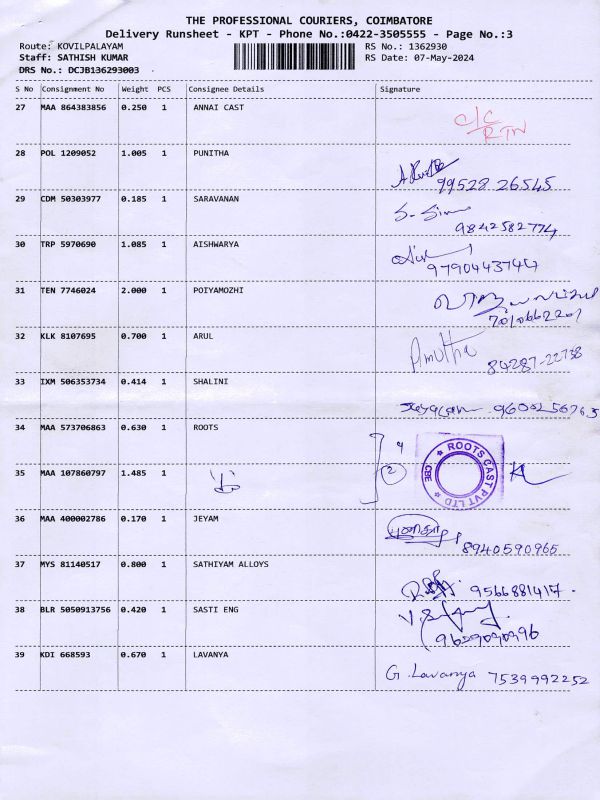 THE PROFESSIONAL COURIERS, COIMBATORE
Delivery Runsheet - KPT - Phone No.:0422-3505555 - Page No.:3
Route: KOVILPALAYAM RS No.: 1362930
Staff: SATHISH KUMAR RS Date: 07-May-2024
DRS No.: DCJB136293003
S No Consignment No Weight PCS Consignee Details Signature
27 MAA 864383856 0.250 1 ANNAI CAST
C/C
RTN
28 POL 1209052 1.005 1 PUNITHA
99528 26545
29 CDM 50303977 0.185 1 SARAVANAN
9842582774
30 TRP 5970690 1.085 1 AISHWARYA
9790443744
31 TEN 7746024 2.000 1 POIYAMOZHI
7010662201
32 KLK 8107695 0.700 1 ARUL
Amutha 84287-22738
33 IXM 506353734 0.414 1 SHALINI
34 MAA 573706863 0.630 1 ROOTS
ROOTS CAST PVT LTD
CBE
35 MAA 107860797 1.485 1
2
36 MAA 400002786 0.170 1 JEYAM
8940590965
37 MYS 81140517 0.800 1 SATHIYAM ALLOYS
9566881417
38 BLR 5050913756 0.420 1 SASTI ENG
39 KDI 668593 0.670 1 LAVANYA
G. Lavanya 7539992252